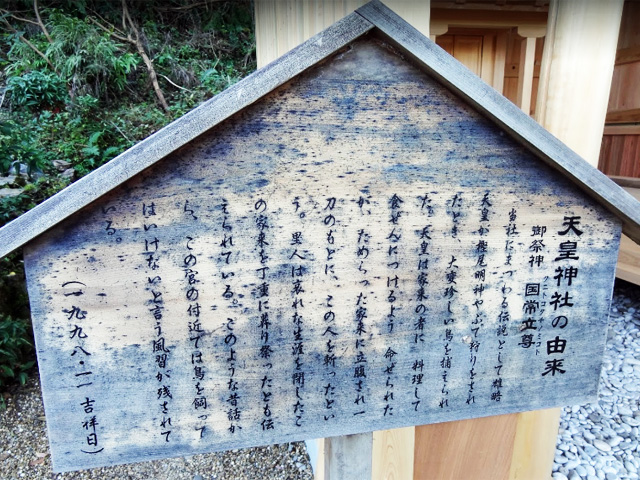 天皇神社の由来
御祭神　国常立尊
クニトコタチノミコト
当社にまつわる伝説として雄略
天皇が樫尾明神やぶで狩りをされ
たとき、大変珍しい鳥を捕えられ
た。天皇は家来の者に料理して
食ぜんにつけるよう命ぜられた
が、ためらった家来に立腹され一
刀のもとに、この人を斬ったとい
う。里人は哀れな生涯を閉じたこ
の家来を丁重に葬り祭ったとも伝
えられている。このような昔話か
ら、この宮の付近では鳥を飼って
はいけないと言う風習が残されて
いる。
（一九九八・一一 吉祥日）